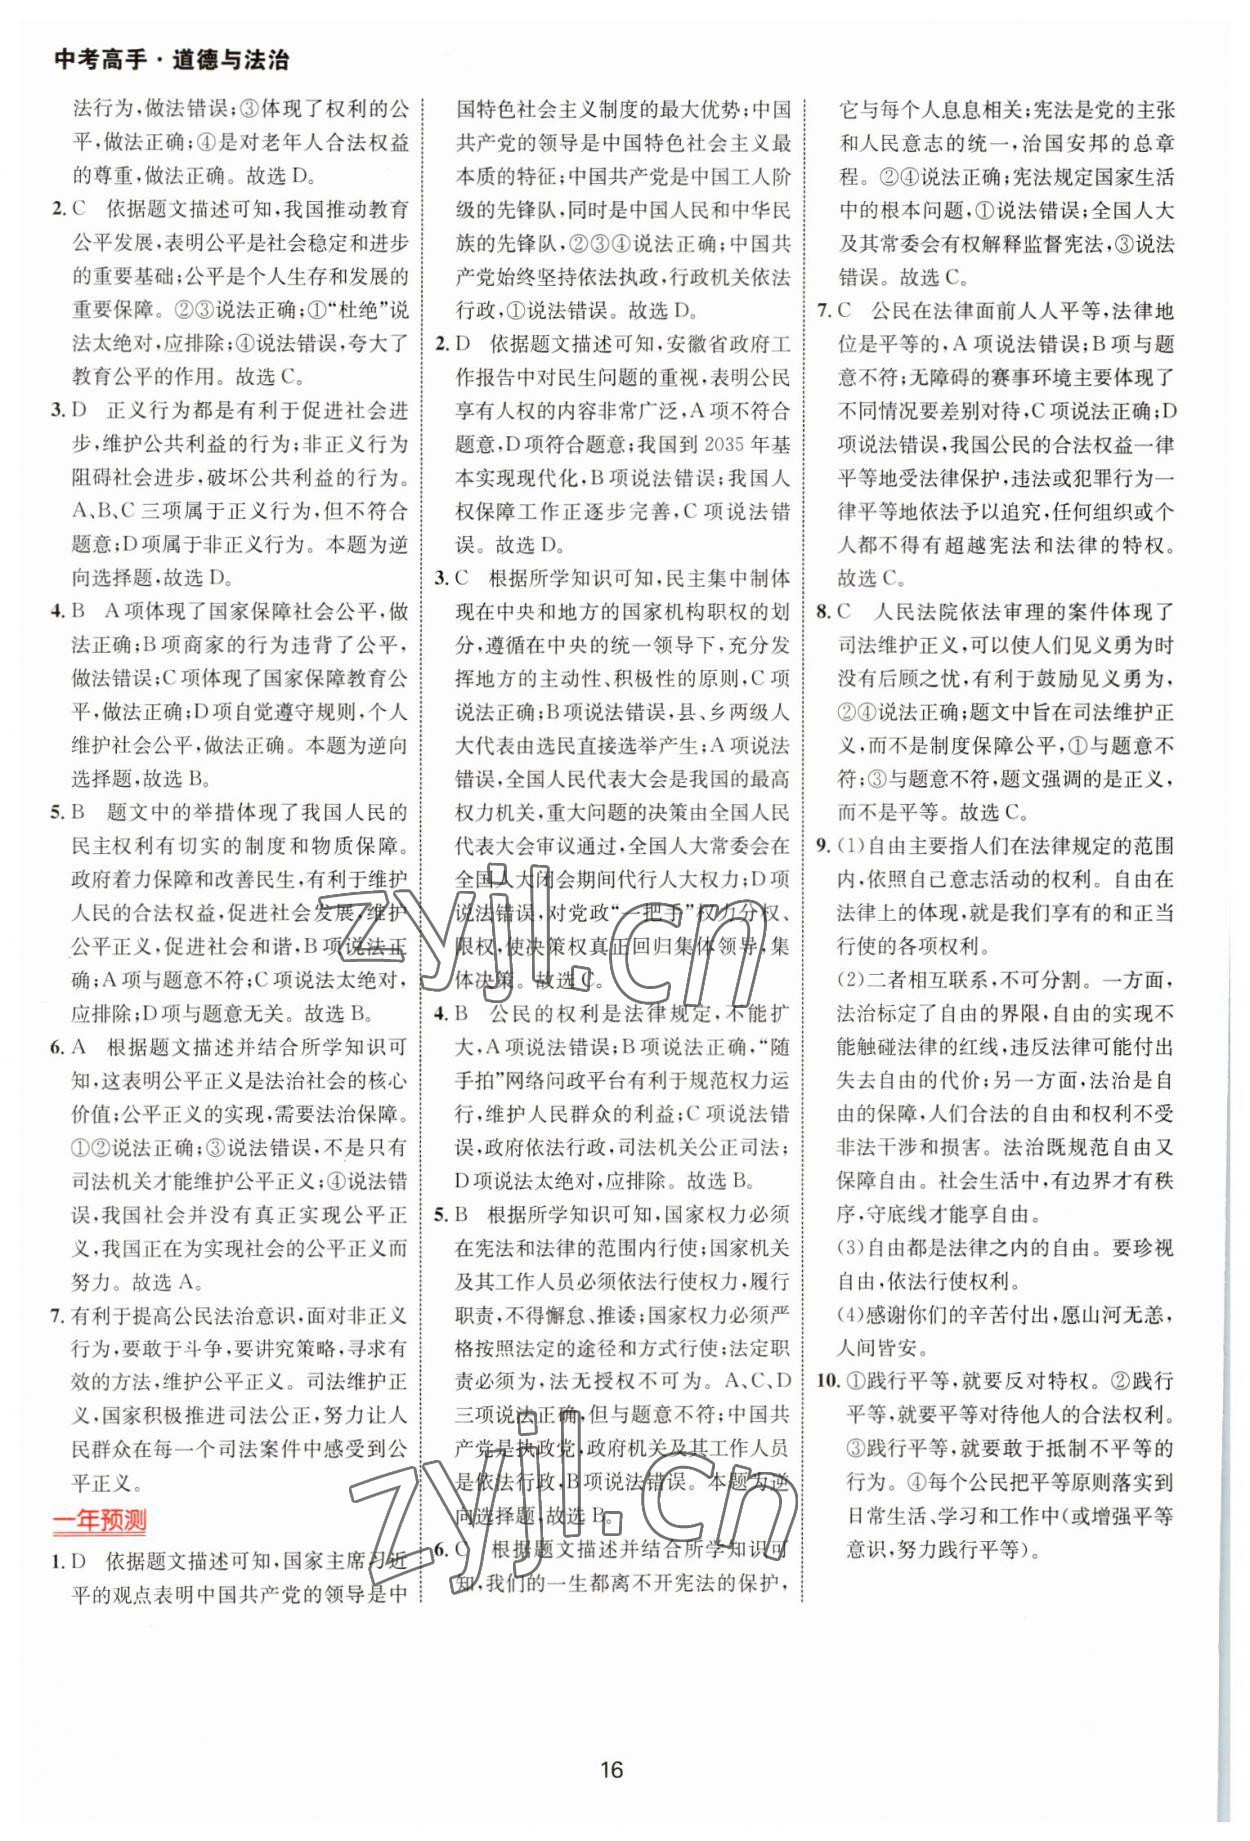 中考高手·道德与法治
法行为,做法错误;③体现了权利的公
平,做法正确;④是对老年人合法权益
的尊重,做法正确。故选 D。
2. C 依据题文描述可知,我国推动教育
公平发展,表明公平是社会稳定和进步
的重要基础;公平是个人生存和发展的
重要保障。②③说法正确;①“杜绝”说
法太绝对,应排除;④说法错误,夸大了
教育公平的作用。故选 C。
3. D 正义行为都是有利于促进社会进
步,维护公共利益的行为;非正义行为
阻碍社会进步,破坏公共利益的行为。
A、B、C 三项属于正义行为,但不符合
题意;D 项属于非正义行为。本题为逆
向选择题,故选 D。
4. B A 项体现了国家保障社会公平,做
法正确;B 项商家的行为违背了公平,
做法错误;C 项体现了国家保障教育公
平,做法正确;D 项自觉遵守规则,个人
维护社会公平,做法正确。本题为逆向
选择题,故选 B。
5. B 题文中的举措体现了我国人民的
民主权利有切实的制度和物质保障。
政府着力保障和改善民生,有利于维护
人民的合法权益,促进社会发展,维护
公平正义,促进社会和谐,B 项说法正
确;A 项与题意不符;C 项说法太绝对,
应排除;D 项与题意无关。故选 B。
6. A 根据题文描述并结合所学知识可
知,这表明公平正义是法治社会的核心
价值;公平正义的实现,需要法治保障。
①②说法正确;③说法错误,不是只有
司法机关才能维护公平正义;④说法错
误,我国社会并没有真正实现公平正
义,我国正在为实现社会的公平正义而
努力。故选 A。
7. 有利于提高公民法治意识,面对非正义
行为,要敢于斗争,要讲究策略,寻求有
效的方法,维护公平正义。司法维护正
义,国家积极推进司法公正,努力让人
民群众在每一个司法案件中感受到公
平正义。
一年预测
1. D 依据题文描述可知,国家主席习近
平的观点表明中国共产党的领导是中
国特色社会主义制度的最大优势;中国
共产党的领导是中国特色社会主义最
本质的特征;中国共产党是中国工人阶
级的先锋队,同时是中国人民和中华民
族的先锋队,②③④说法正确;中国共
产党始终坚持依法执政,行政机关依法
行政,①说法错误。故选 D。
2. D 依据题文描述可知,安徽省政府工
作报告中对民生问题的重视,表明公民
享有人权的内容非常广泛,A 项不符合
题意,D 项符合题意;我国到 2035 年基
本实现现代化,B 项说法错误;我国人
权保障工作正逐步完善,C 项说法错
误。故选 D。
3. C 根据所学知识可知,民主集中制体
现在中央和地方的国家机构职权的划
分,遵循在中央的统一领导下,充分发
挥地方的主动性、积极性的原则,C 项
说法正确;B 项说法错误,县、乡两级人
大代表由选民直接选举产生;A 项说法
错误,全国人民代表大会是我国的最高
权力机关,重大问题的决策由全国人民
代表大会审议通过,全国人大常委会在
全国人大闭会期间代行人大权力;D 项
说法错误,对党政“一把手”权力分权、
限权,使决策权真正回归集体领导,集
体决策。故选 C。
4. B 公民的权利是法律规定,不能扩
大,A 项说法错误;B 项说法正确,“随
手拍”网络问政平台有利于规范权力运
行,维护人民群众的利益;C 项说法错
误,政府依法行政,司法机关公正司法;
D 项说法太绝对,应排除。故选 B。
5. B 根据所学知识可知,国家权力必须
在宪法和法律的范围内行使;国家机关
及其工作人员必须依法行使权力,履行
职责,不得懈怠、推诿;国家权力必须严
格按照法定的途径和方式行使;法定职
责必须为,法无授权不可为。A、C、D
三项说法正确,但与题意不符;中国共
产党是执政党,政府机关及其工作人员
是依法行政,B 项说法错误。本题为逆
向选择题,故选 B。
6. C 根据题文描述并结合所学知识可
知,我们的一生都离不开宪法的保护,
它与每个人息息相关;宪法是党的主张
和人民意志的统一,治国安邦的总章
程。②④说法正确;宪法规定国家生活
中的根本问题,①说法错误;全国人大
及其常委会有权解释监督宪法,③说法
错误。故选 C。
7. C 公民在法律面前人人平等,法律地
位是平等的,A 项说法错误;B 项与题
意不符;无障碍的赛事环境主要体现了
不同情况要差别对待,C 项说法正确;D
项说法错误,我国公民的合法权益一律
平等地受法律保护,违法或犯罪行为一
律平等地依法予以追究,任何组织或个
人都不得有超越宪法和法律的特权。
故选 C。
8. C 人民法院依法审理的案件体现了
司法维护正义,可以使人们见义勇为时
没有后顾之忧,有利于鼓励见义勇为,
②④说法正确;题文中旨在司法维护正
义,而不是制度保障公平,①与题意不
符;③与题意不符,题文强调的是正义,
而不是平等。故选 C。
9. (1)自由主要指人们在法律规定的范围
内,依照自己意志活动的权利。自由在
法律上的体现,就是我们享有的和正当
行使的各项权利。
(2)二者相互联系,不可分割。一方面,
法治标定了自由的界限,自由的实现不
能触碰法律的红线,违反法律可能付出
失去自由的代价;另一方面,法治是自
由的保障,人们合法的自由和权利不受
非法干涉和损害。法治既规范自由又
保障自由。社会生活中,有边界才有秩
序,守底线才能享自由。
(3)自由都是法律之内的自由。要珍视
自由,依法行使权利。
(4)感谢你们的辛苦付出,愿山河无恙,
人间皆安。
10. ①践行平等,就要反对特权。②践行
平等,就要平等对待他人的合法权利。
③践行平等,就要敢于抵制不平等的
行为。④每个公民把平等原则落实到
日常生活、学习和工作中(或增强平等
意识,努力践行平等)。
zyjl.cn
zyjl.cn
16